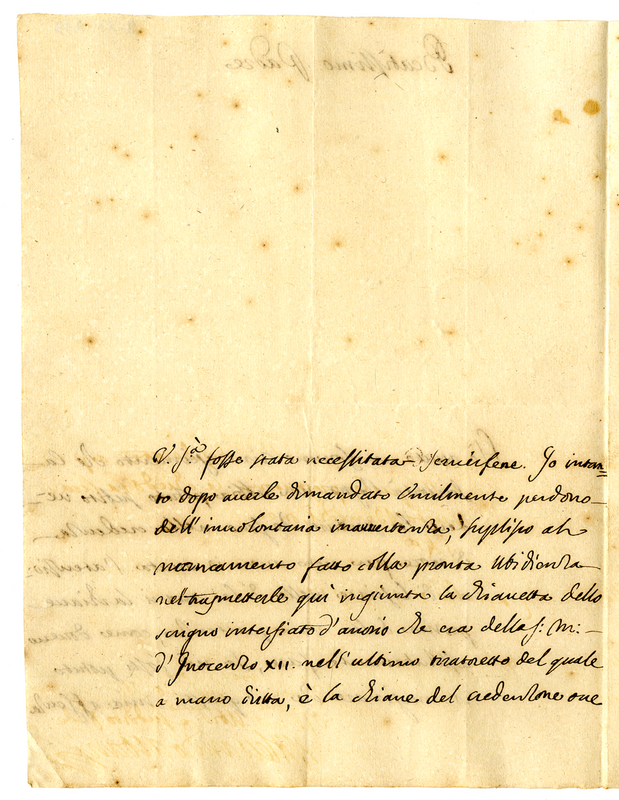 V. S.ᵃ fosse stata necessitata servirsene. Io intan=
to dopo averle dimandato umilmente perdono
dell'involontaria inavvertenza, supplisco al
mancamento fatto colla pronta ubidienza
nel trasmetterle qui ingiunta la chiavetta dello
scrigno intersiato d'avorio che era della s: m:
d'Inocenzo XII. nell'ultimo tiratoretto del quale
a mano dritta, è la chiave del credenzone ove